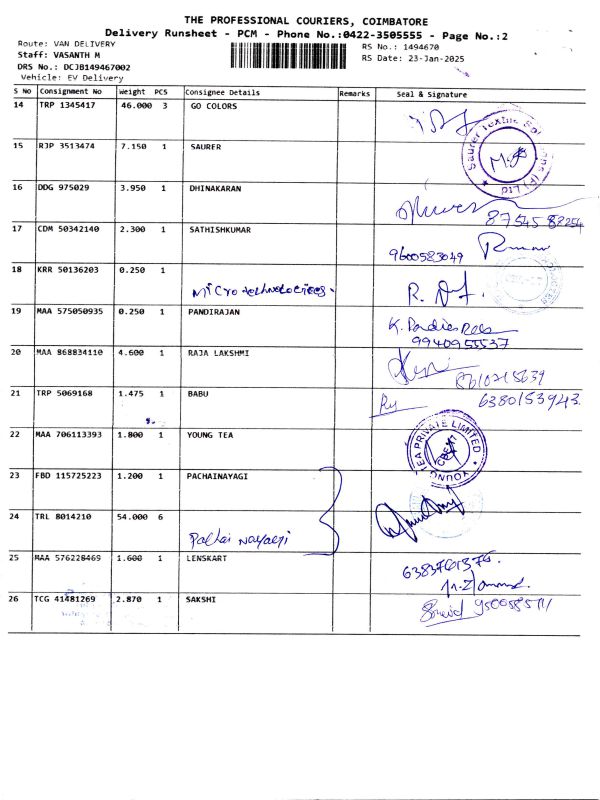 THE PROFESSIONAL COURIERS, COIMBATORE
Delivery Runsheet - PCM - Phone No.:0422-3505555 - Page No.:2
Route: VAN DELIVERY RS No.: 1494670
Staff: VASANTH M RS Date: 23-Jan-2025
DRS No.: DCJB149467002
Vehicle: EV Delivery
S No Consignment No Weight PCS Consignee Details Remarks Seal & Signature
14 TRP 1345417 46.000 3 GO COLORS
15 RJP 3513474 7.150 1 SAURER
16 DDG 975029 3.950 1 DHINAKARAN
87545 82254
17 CDM 50342140 2.300 1 SATHISHKUMAR
9600583049
18 KRR 50136203 0.250 1
Micro technologies R. D
19 MAA 575050935 0.250 1 PANDIRAJAN K.
9940955537
20 MAA 868834110 4.600 1 RAJA LAKSHMI
21 TRP 5069168 1.475 1 BABU 6380153943
22 MAA 706113393 1.800 1 YOUNG TEA YOUNG TEA PRIVATE LIMITED
23 FBD 115725223 1.200 1 PACHAINAYAGI
24 TRL 8014210 54.000 6
25 MAA 576228469 1.600 1 LENSKART
26 TCG 41481269 2.870 1 SAKSHI